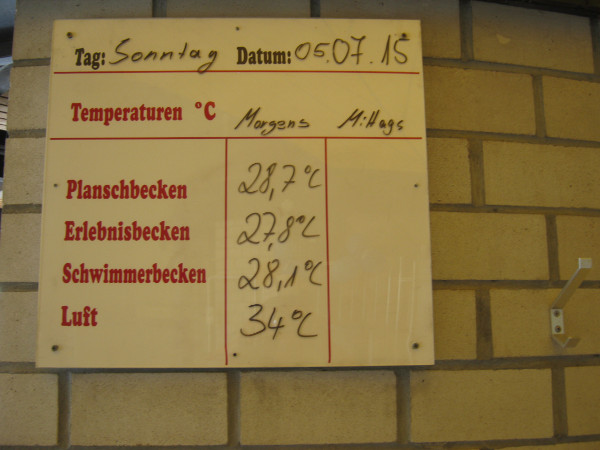 Tag: Sonntag Datum: 05.07.15
Temperaturen °C Morgens Mittags
Planschbecken 28,7°C
Erlebnisbecken 27,8°C
Schwimmerbecken 28,1°C
Luft 34°C